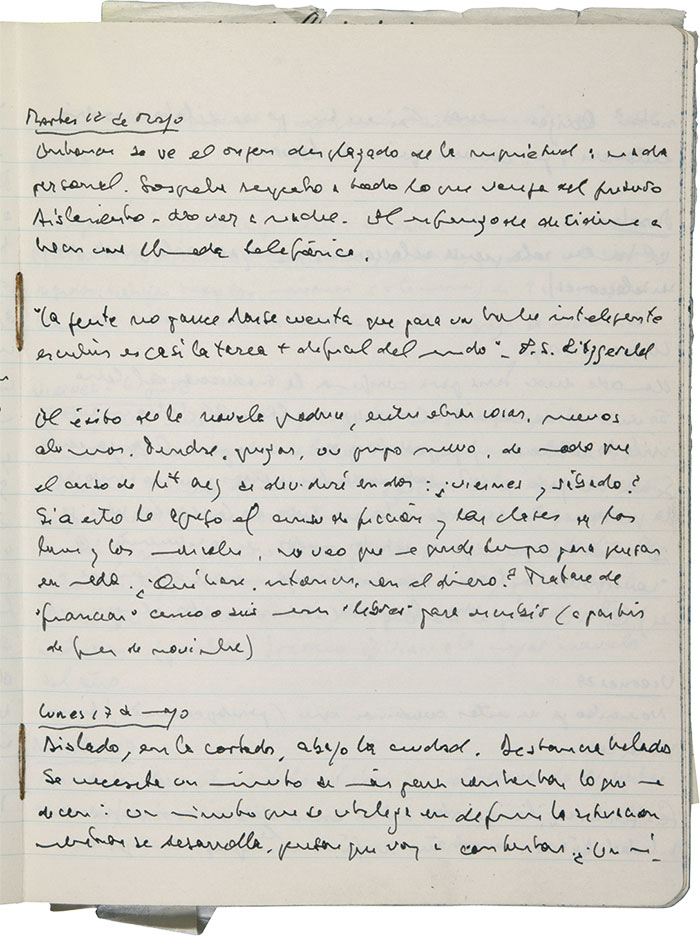 Martes 12 de Mayo
se ve el origen desplazado de la inquietud: nada
personal. respecto a todo lo que venga del pasado
Aislamiento - No ver a nadie. El esfuerzo de decidirme a
hacer una llamada telefónica.
"La gente no parece darse cuenta que para un hombre inteligente
escribir es casi la tarea + difícil del mundo" - F. S. Fitzgerald
El éxito de la novela produce, entre otras cosas, menos
alumnos. Tendré, quizás, un grupo nuevo, de modo que
el curso de Lit Arg se dividirá en dos: ¿viernes y sábado?
Si a esto le agrego el curso de ficción y las clases de los
lunes y los miércoles, no veo que me quede tiempo para pensar
en nada. ¿Qué hacer, entonces, con el dinero? Trataré de
"financiar" cinco o seis meses "libres" para escribir (a partir
de fines de noviembre)
Lunes 17 de mayo
Aislado, en la cortada, abajo la ciudad. Distancia helada
Se necesita un minuto de más para contestar lo que me
dicen: un minuto que se utiliza en definir la situación
mientras se desarrolla, pensar que voy a contestar. ¿Un mi-